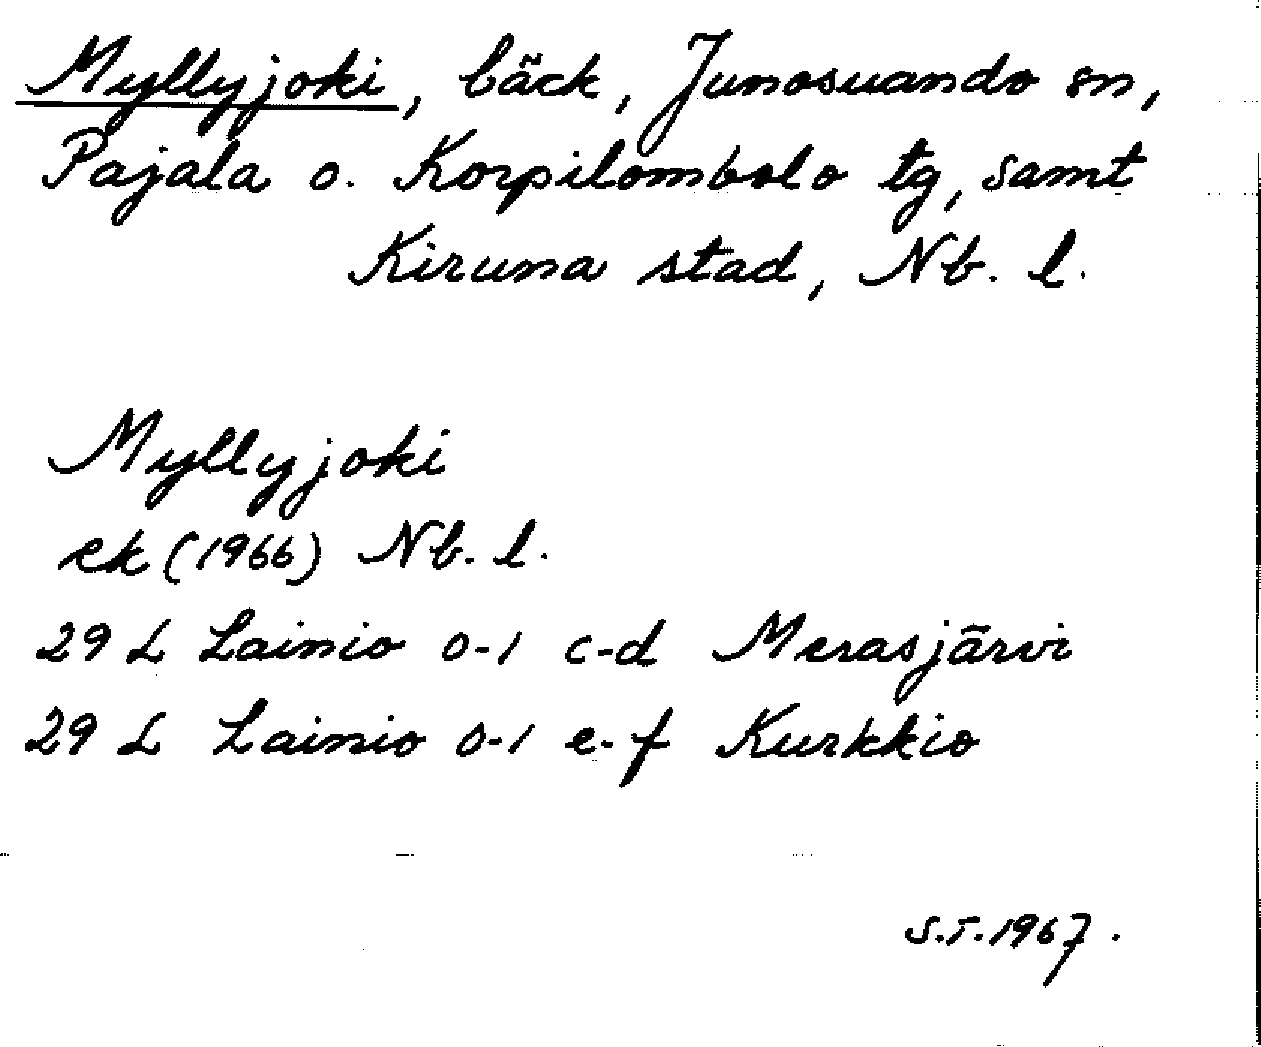 Myllyjoki, bäck, Junosuando sn,
Pajala o. Korpilombolo tg, samt
Kiruna stad, Nb. l.
Myllyjoki
ek (1966) Nb. l.
29 L Lainio 0-1 c-d Merasjärvi
29 L Lainio 0-1 e-f Kurkkio
S.T. 1967.